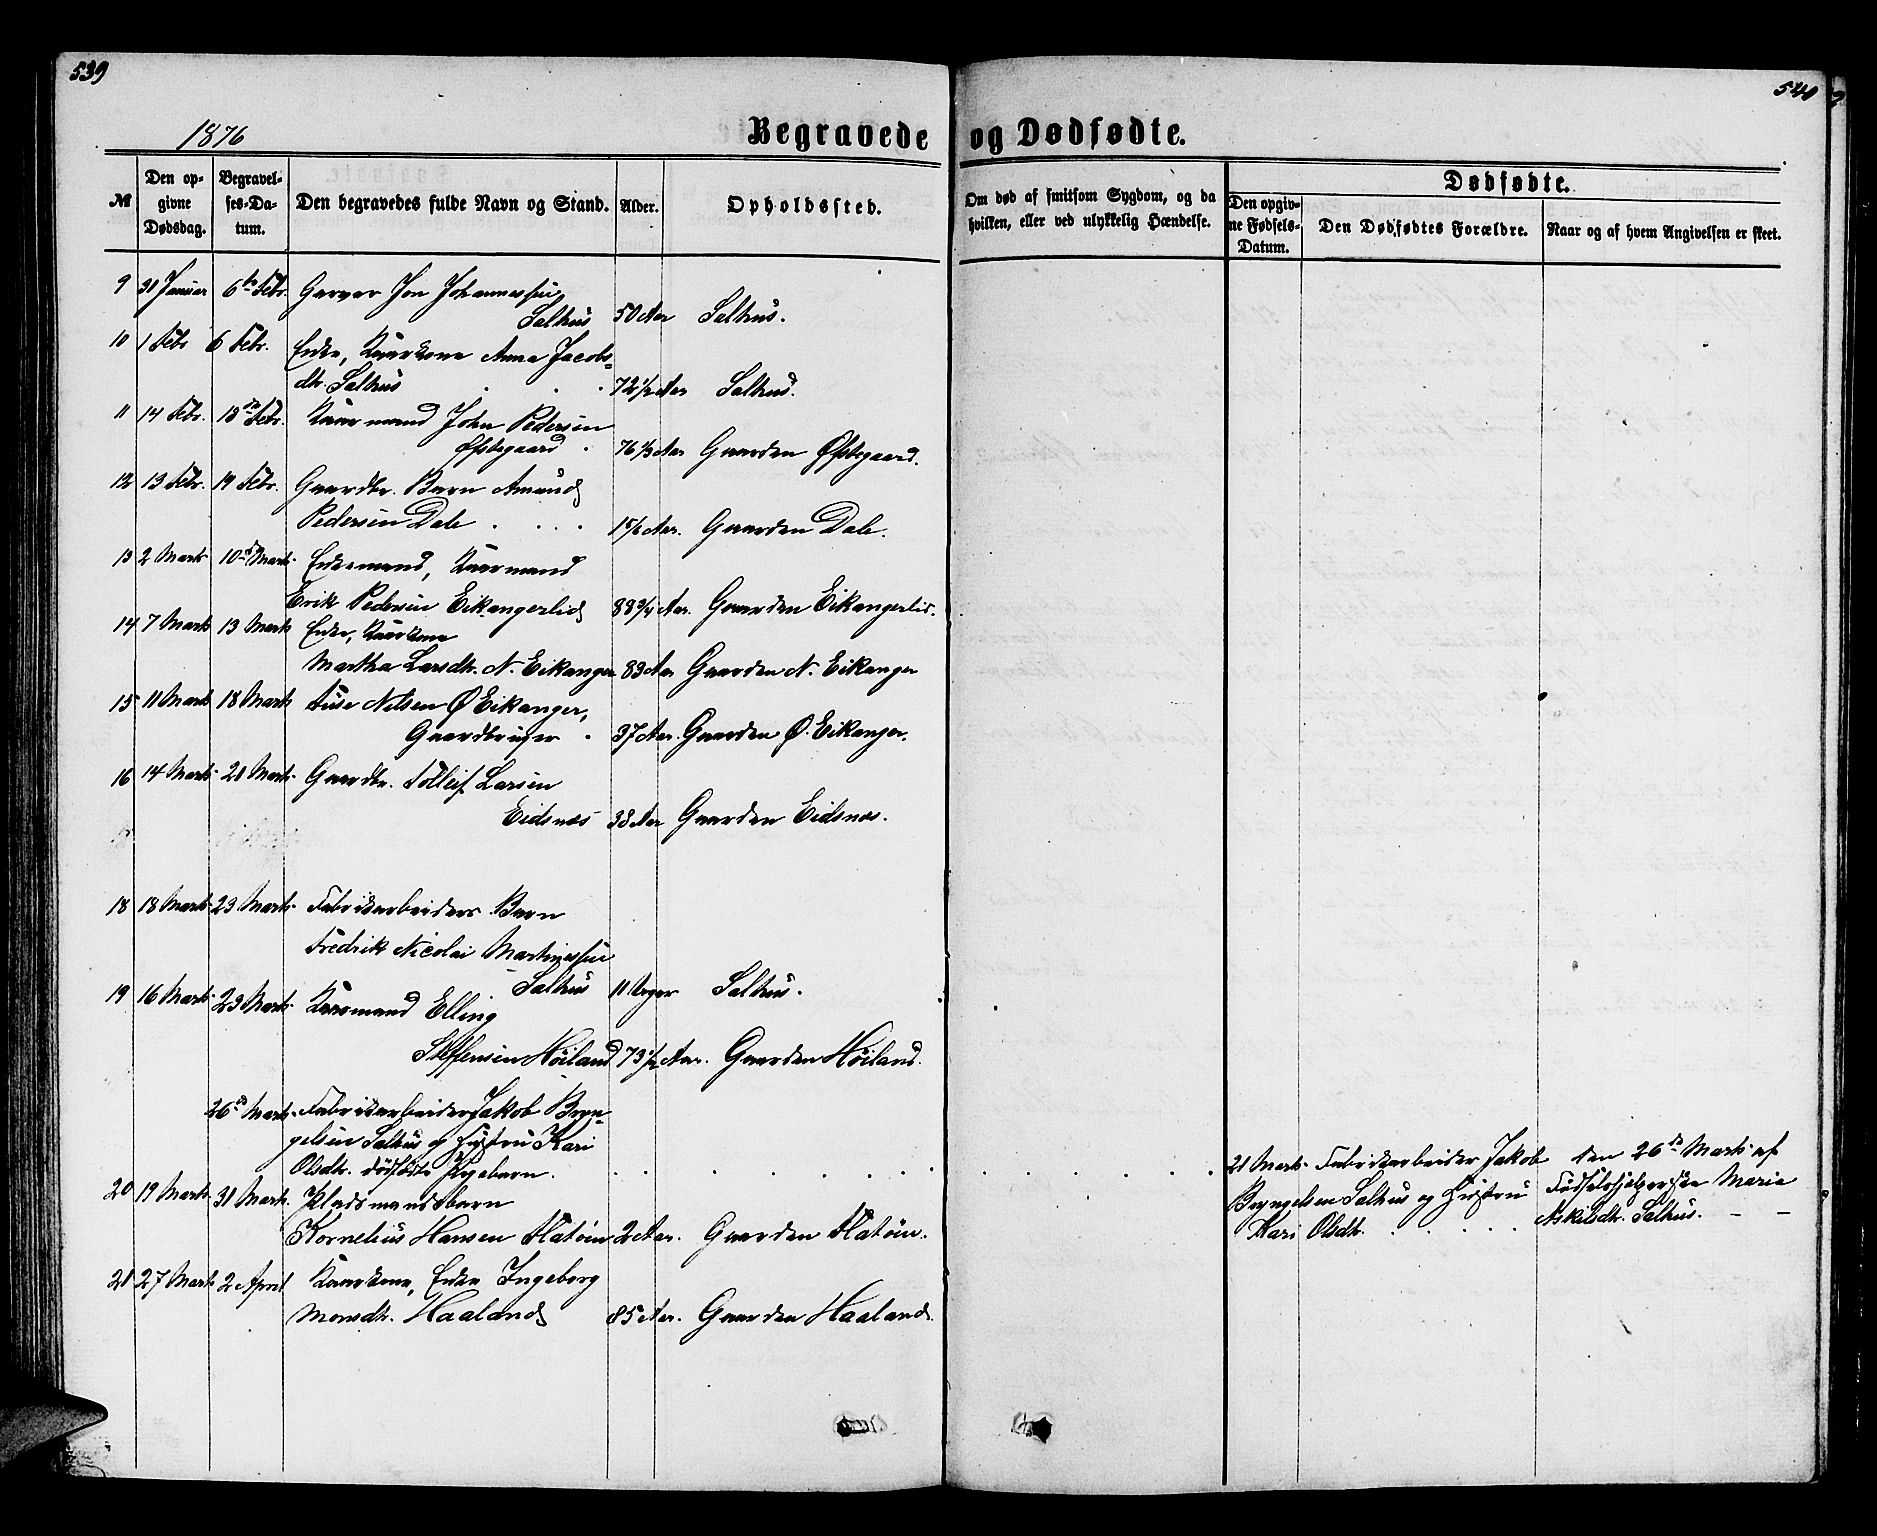 539
540
1876
Begravede og Dødfødte.
№
Den opgivne Dødsdag.
Begravelses-Datum.
Den begravedes fulde Navn og Stand.
Alder.
Opholdssted.
Om død af smitsom Sygdom, og da hvilken, eller ved ulykkelig Hændelse.
Dødfødte.
Den opgivne Fødsels-Datum.
Den Dødfødtes Forældre.
Naar og af hvem Angivelsen er skeet.
9 31 Januar 6te Febr. Garver Jon Johannessen
Salhus 50 Aar Salhus.
10 1 Febr 6 Febr. Enke, Kaarkone Anna Jacobs-
dtr. Salhus 72 1/2 Aar Salhus.
11 14 Febr. 18de Febr. Kaarmand John Pedersen
Østegaard 76 1/3 Aar Gaarden Østegaard.
12 13 Febr. 19 Febr. Gaardbr. Barn Amund
Pedersen Dale . . . . 1 5/6 Aar. Gaarden Dale.
13 2 Marts 10de Marts Enkemand, Kaarmand
Erik Pedersen Eikangerlid 88 3/4 Aar. Gaarden Eikangerlid.
14 7 Marts 13 Marts Enke, Kaarkone
Martha Larsdtr. N. Eikanger 83 Aar Gaarden N. Eikanger
15 11 Marts 18 Marts Nilsen Ø Eikanger,
Gaardbruger . 37 Aar. Gaarden Ø. Eikanger.
16 14 Marts 21 Marts Gaardbr. Tolleif Larsen
Eidsnes 38 Aar Gaarden Eidsnes.
18 18 Marts 23 Marts Fabrikarbeiders Barn
Fredrik Nicolai Martinessen
Salhus 11 Uger Salhus.
19 16 Marts 23 Marts Kaarmand Elling
Steffensen Höiland 73 1/2 Aar. Gaarden Höiland.
26de Marts Fabrikarbeider Jakob Bryn-
gelsen Salhus og Hustru Kari
Olsdtr. dødfødte Pigebarn. . . . . . . . . . . .
21 Marts Fabrikarbeider Jakob
Bryngelsen Salhus og Hustru
Kari Olsdtr. . . . .
den 26de Marts af
Fødselshjelpersken Maria
Askelsdtr. Salhus. — —
20 19 Marts 31 Marts Pladsmandsbarn
Kornelius Hansen Flatøen 2 Aar. Gaarden Flatøen.
21 27 Marts 2 April Kaarkone, Enke Ingeborg
Monsdtr. Haaland 85 Aar. Gaarden Haaland.